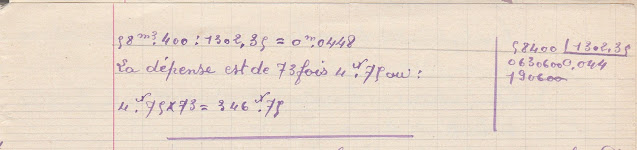 58m3.400 : 1302,35 = 0m.0448
La dépense est de 73 fois 4f.75 ou :
4f.75 x 73 = 346f.75
58400 | 1302,35
0630600 0.044
190600